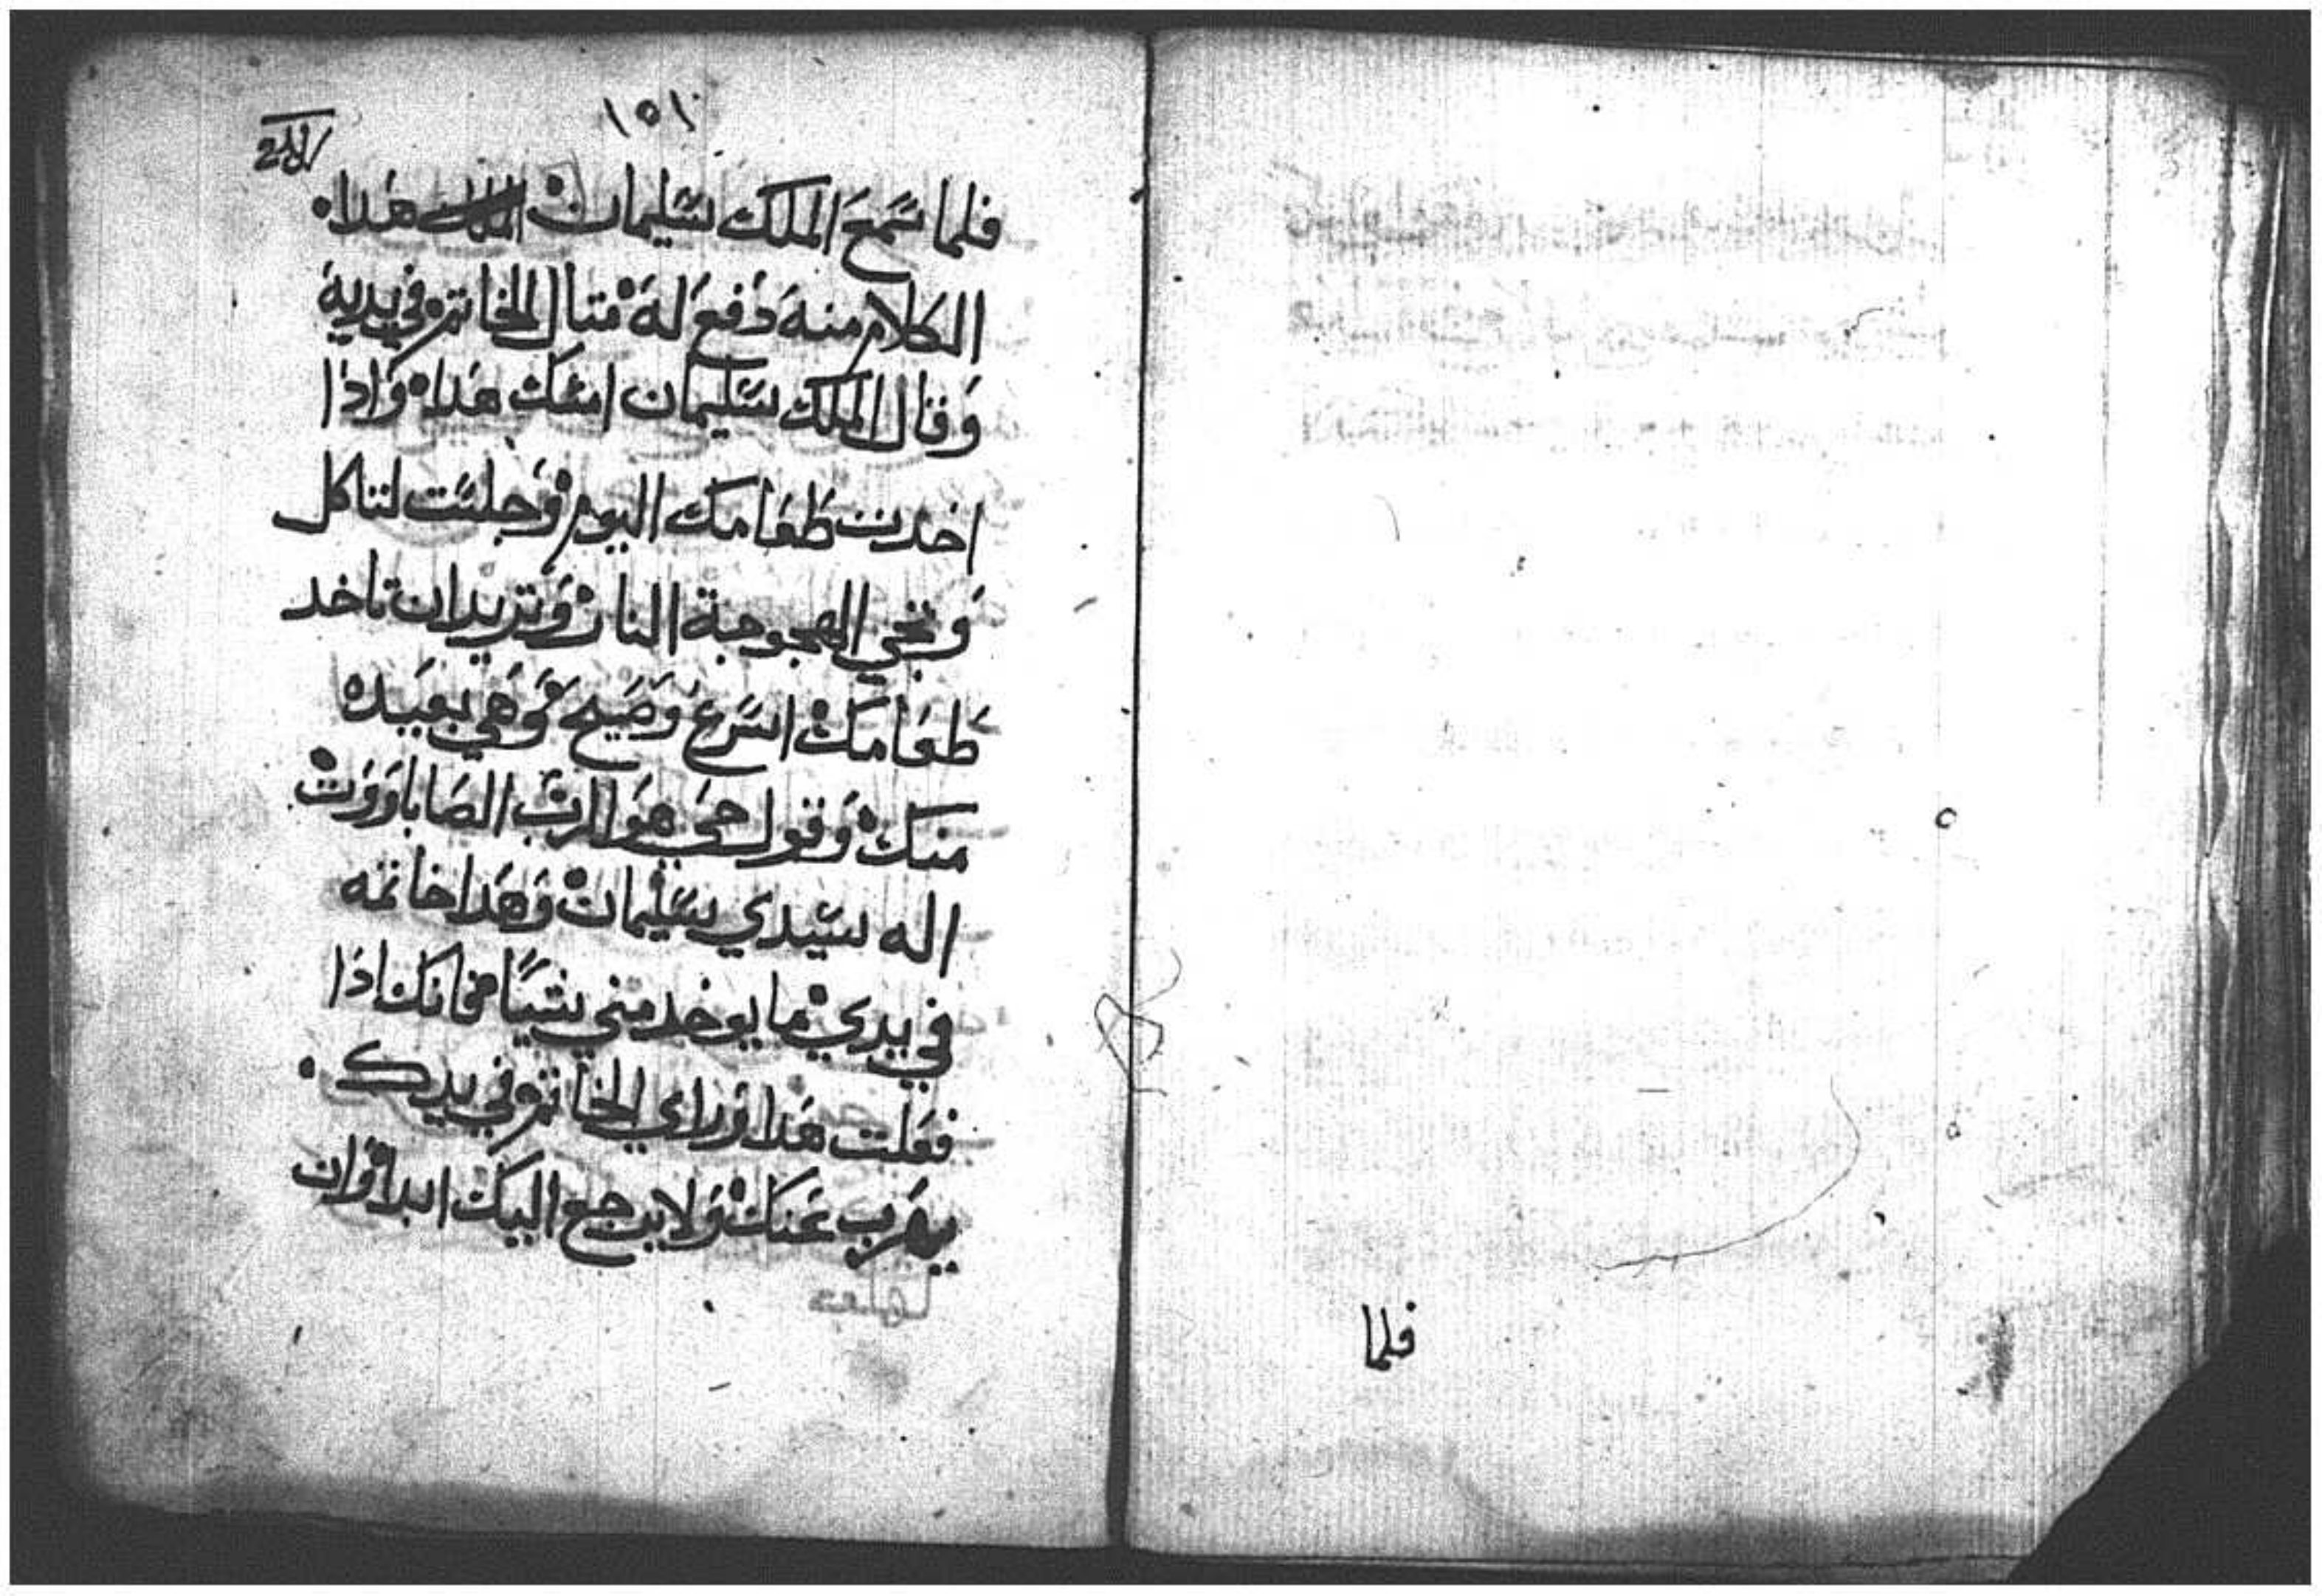 فلما
١٥١
فلما سمع الملك سليمان هدا
الكلام منه دفع له متال الخاتم في يديه
وقال الملك سليمان امسك هدا واذا
اخدت طعامك اليوم وجلست لتاكل
وتجي الهجوجة النار وتريد ان تاخد
طعامك اسرع وصيح وهي بعيده
منك وقول حي هو الرب الصاباووت
اله سيدي سليمان وهدا خاتمه
في يدي ما يوخد مني شيا فانك اذا
فعلت هدا وراي الخاتم في يدك
يهرب عنك ولا يرجع اليك ابدا وان